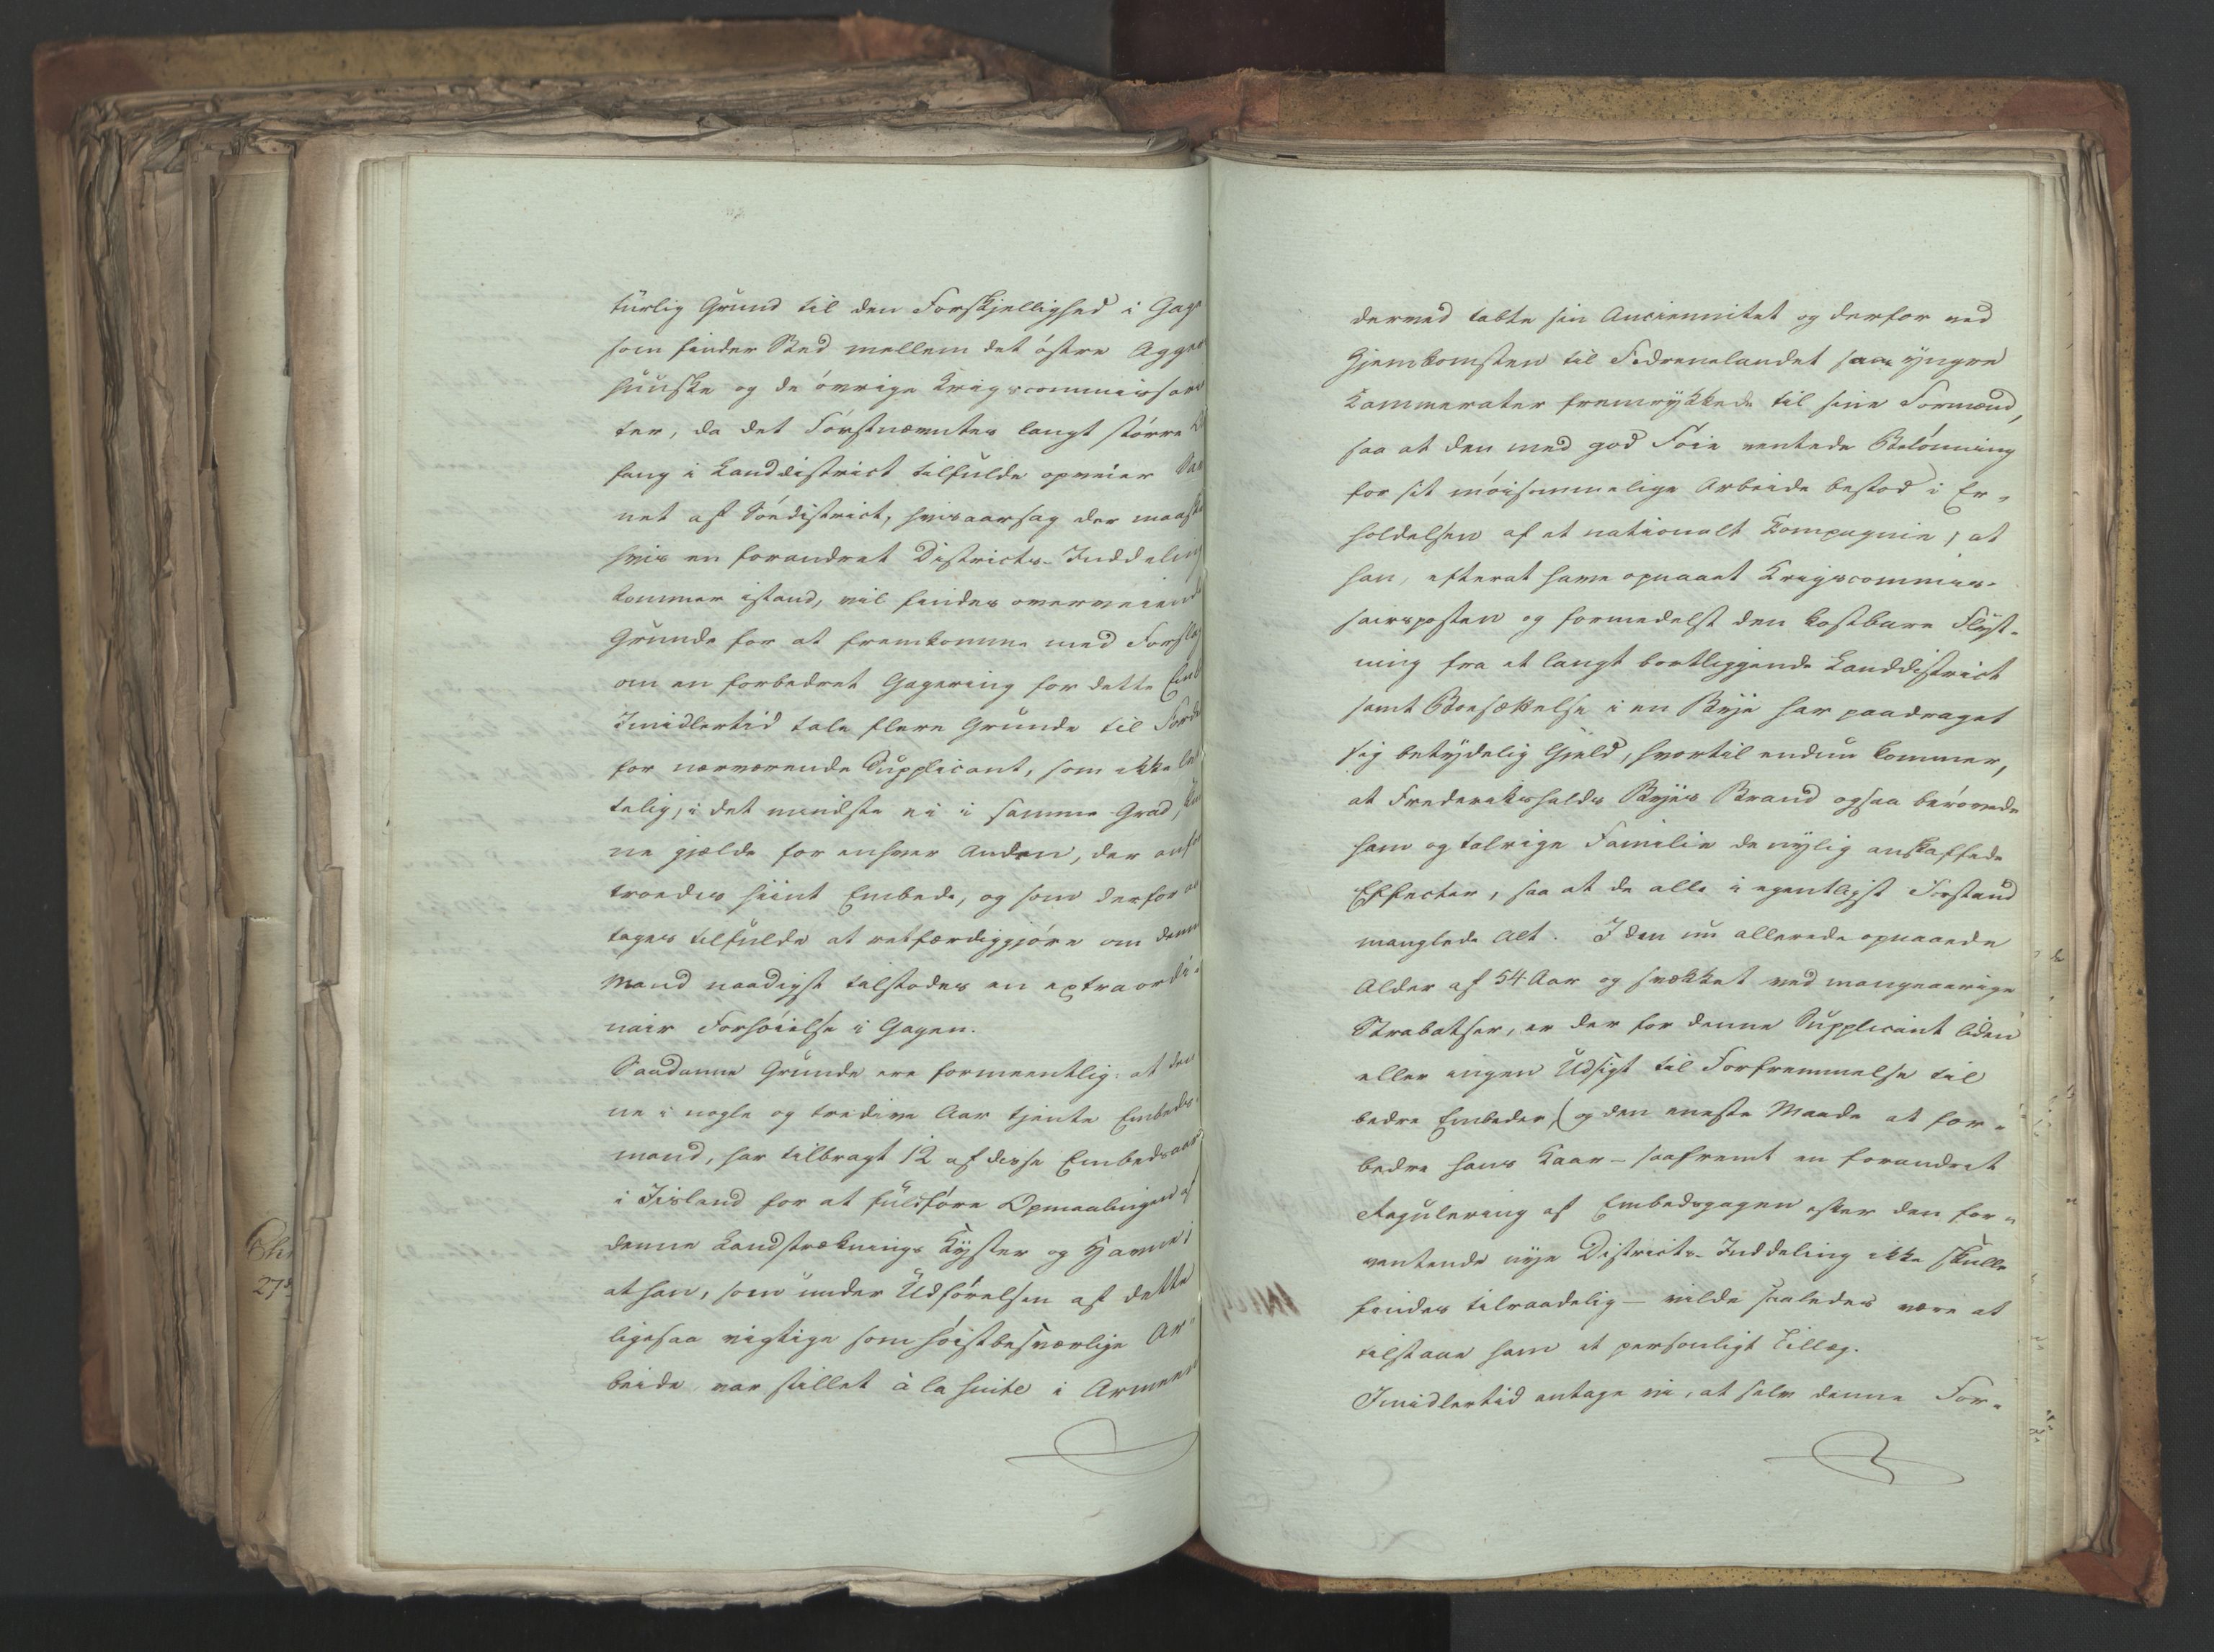 türlig Grund til den Forskjellighed i Gage
som finder Sted mellem det östre Agger
huuske og de övrige Krigscommissari
ter, da det Förstnævntes langt större
fang i Landdistrict tilfulde opveier Sav
net af Söedistrict, hvisaarsag der maaske
hvis en forandret Districts-Inddeling
kommer istand, vil findes overveiende
Grunde for at fremkomme med Forslag
om en forbedret Gagering for dette Emb
Imidlertid tale flere Grunde til Forde
for nærværende Supplicant, som ikke let
telig, i det mindste ei i samme Grad, kun
ne gjælde for enhver Anden, der anfor
troedes hiint Embede, og som derfor an
tages tilfulde at retfærdiggjöre om denne
Mand naadigst tilstodes en extraordi-
nair Forhöielse i Gagen.
Saadanne Grunde ere formeentlig: at den
ne i nogle og tredive Aar tjente Embeds-
mand, har tilbragt 12 af disse Embedsaar
i Iisland for at fuldföre Opmaalingen af
denne Landstræknings Kyster og Havne;
at han, som under Udförelsen af dette
ligesaa vigtige som höistbesværlige Ar-
beide var stillet à la suite i Armeen
derved tabte sin Anciennitet og derfor ved
Hjemkomsten til Fædrenelandet saae yngre
Kammerater fremrykkede til sine Formænd,
saa at den med god Föie ventede Belönning
for sit möisommelige Arbeide bestod i Er-
holdelsen af et nationalt Compagnie; at
han, efterat have opnaaet Krigscommis-
sairsposten og formedelst den kostbare Flyt-
ning fra et langt bortliggende Landdistrict
samt Bosættelse i en Bye har paadraget
sig betydelig Gjeld, hvortil endnu kommer,
at Frederikshalds Byes Brand ogsaa berövede
ham og talrige Familie de nylig anskaffede
Effecter, saa at de alle i egentligst Forstand
manglede Alt. I den nu allerede opnaaede
Alder af 54 Aar og svækket ved mangeaarige
Strabatser, er der for denne Supplicant liden
eller ingen Udsigt til Forfremmelse til
bedre Embeder, og den eneste Maade at for-
bedre hans Kaar - saafremt en forandret
Regulering af Embedsgagen efter den for-
ventende nye Districts-Inddeling ikke skulle
findes tilraadelig - vilde saaledes være at
tilstaae ham et personligt Tillæg.
Imidlertid antage vi, at selv denne For-